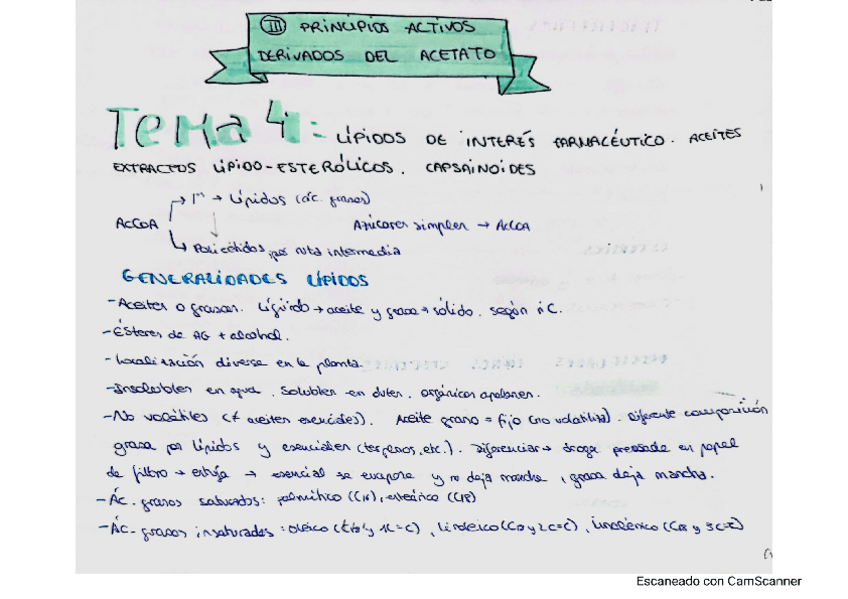 III PRINCIPIOS ACTIVOS
DERIVADOS DEL ACETATO
Tema 4: LÍPIDOS DE INTERÉS FARMACÉUTICO. ACEITES
EXTRACTOS LÍPIDO-ESTERÓLICOS. CAPSAINOIDES
→ 1º → Lípidos (ác. grasos)
AcCoA Azúcares simples → AcCoA
→ Policétidos por ruta intermedia
GENERALIDADES LÍPIDOS
- Aceites o grasas. Líquido → aceite y grasa → sólido. según nºC.
- Ésteres de AG + alcohol.
- Localización diversa en la planta.
- Insolubles en agua. Solubles en disolv. orgánicos apolares.
- No volátiles (≠ aceites esenciales). Aceite graso = fijo (no volatiliza). Diferente composición
grasa por lípidos y esenciales (terpenos, etc.). Diferenciar → droga prensada en papel
de filtro → estufa → esencial se evapora y no deja mancha, grasa deja mancha.
- Ác. grasos saturados: palmítico (C16), esteárico (C18)
- Ác. grasos insaturados: oleico (C18 y 1C=C), linoleico (C18 y 2C=C), linolénico (C18 y 3C=C)
Escaneado con CamScanner